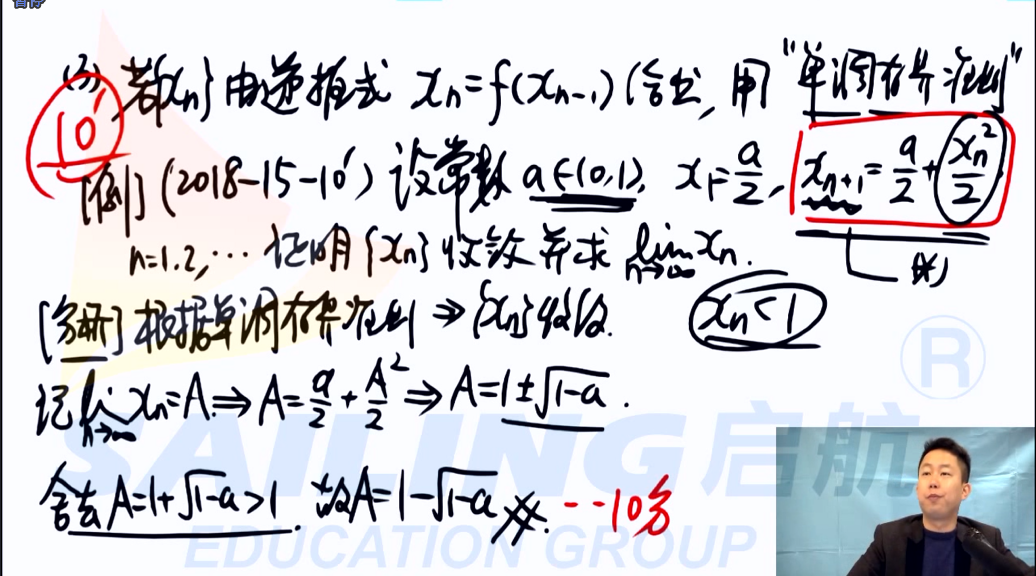 暂停
(3) 若{xn}由递推式 xn=f(xn-1)给出,用"单调有界准则"
10'
[例](2018-15-10')设常数 a∈(0,1), x1=a/2, xn+1=a/2+xn²/2
n=1.2,… 证明{xn}收敛并求 lim n→∞ xn. (*)
[分析]根据单调有界准则⇒{xn}收敛. xn<1
记 lim n→∞ xn=A.⇒A=a/2+A²/2⇒A=1±√1-a.
舍去A=1+√1-a>1. 故A=1-√1-a --10分
SAILING启航
®
EDUCATION GROUP